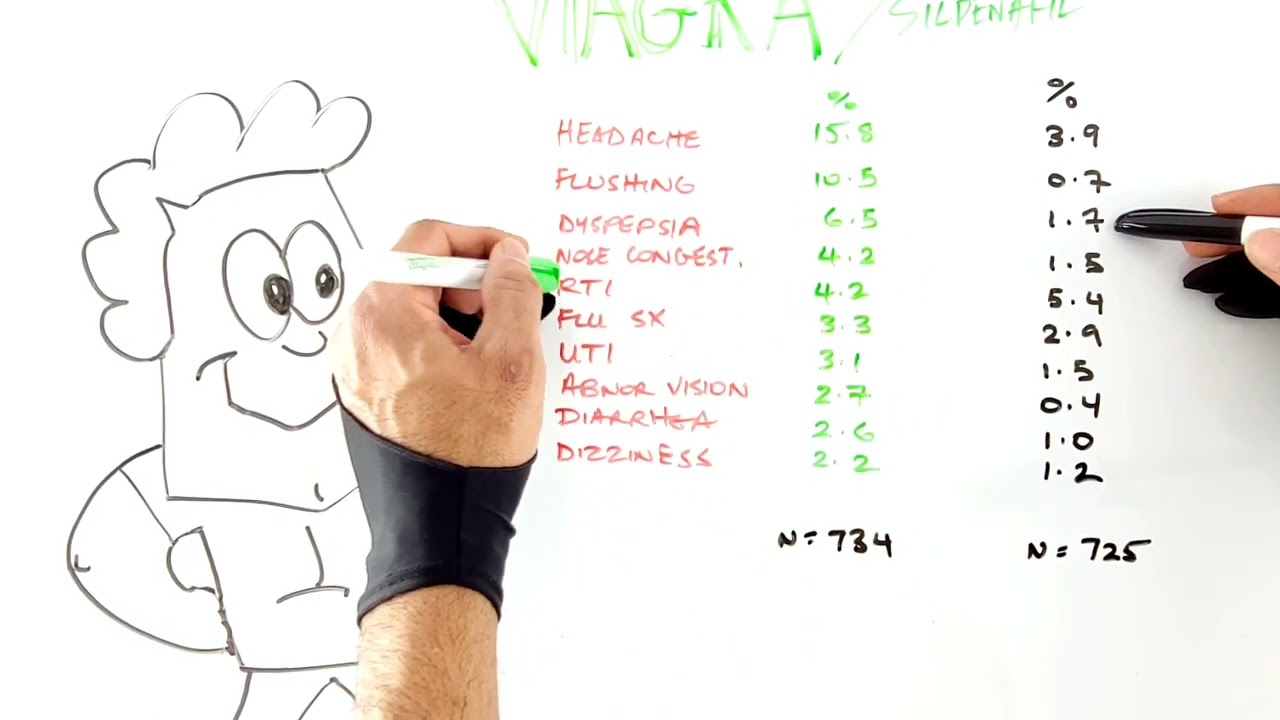 VIAGRA / SILDENAFIL
% %
HEADACHE 15.8 3.9
FLUSHING 10.5 0.7
DYSPEPSIA 6.5 1.7
NOSE CONGEST. 4.2 1.5
RTI 4.2 5.4
FLU SX 3.3 2.9
UTI 3.1 1.5
ABNOR VISION 2.7 0.4
DIARRHEA 2.6 1.0
DIZZINESS 2.2 1.2
N = 734 N = 725